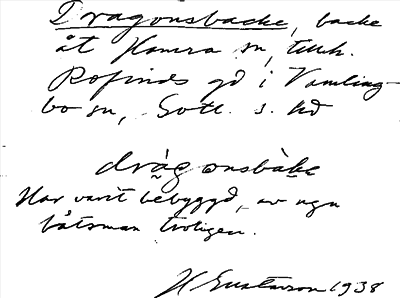 Dragonsbacke, backe
åt Hamra sn, tillh.
Rofinds gd i Vamling-
bo sn, Gotl. s. hd
dràgonsbàke
Har varit bebyggd, av ngn
båtsman troligen.
H Gustavson 1938